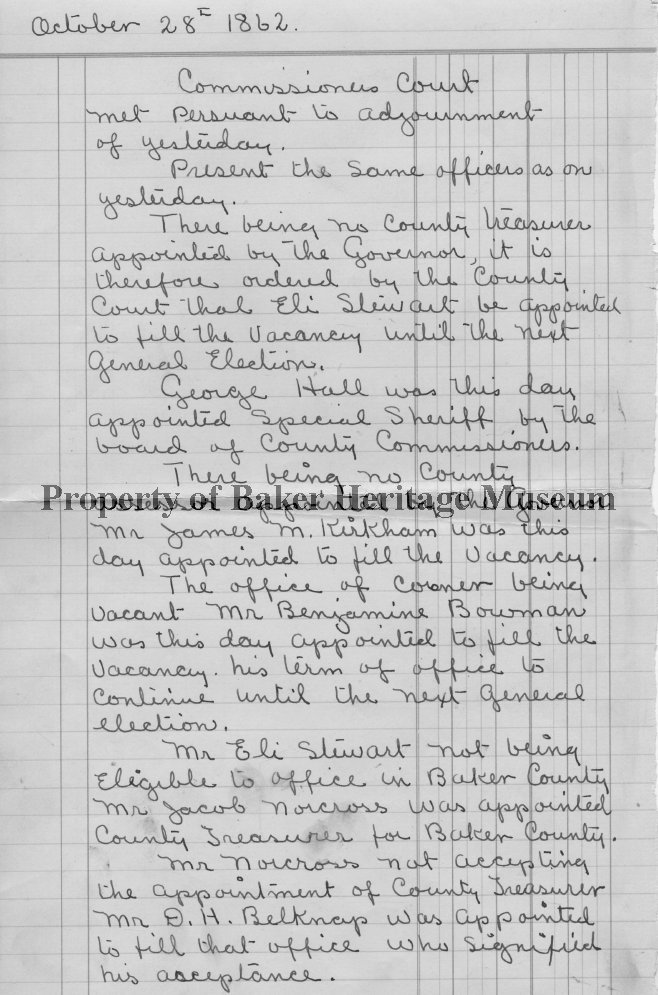 October 28th 1862.
Commissioners Court
met persuant to adjournment
of yesterday.
Present the same officers as on
yesterday.
There being no County treasurer
appointed by the Governor, it is
therefore ordered by the County
Court that Eli Stewart be appointed
to fill the vacancy until the next
General Election.
George Hall was this day
appointed Special Sheriff by the
board of County Commissioners.
There being no County
Property of Baker Heritage Museum
appointed by the Governor
Mr James M. Kirkham was this
day appointed to fill the vacancy.
The office of Coroner being
vacant Mr Benjamine Bowman
was this day appointed to fill the
vacancy. his term of office to
continue until the next General
election.
Mr Eli Stewart not being
Eligible to office in Baker County
Mr Jacob Norcross was appointed
County Treasurer for Baker County.
Mr Norcross not accepting
the appointment of County Treasurer
Mr D. H. Belknap was appointed
to fill that office who signified
his acceptance.